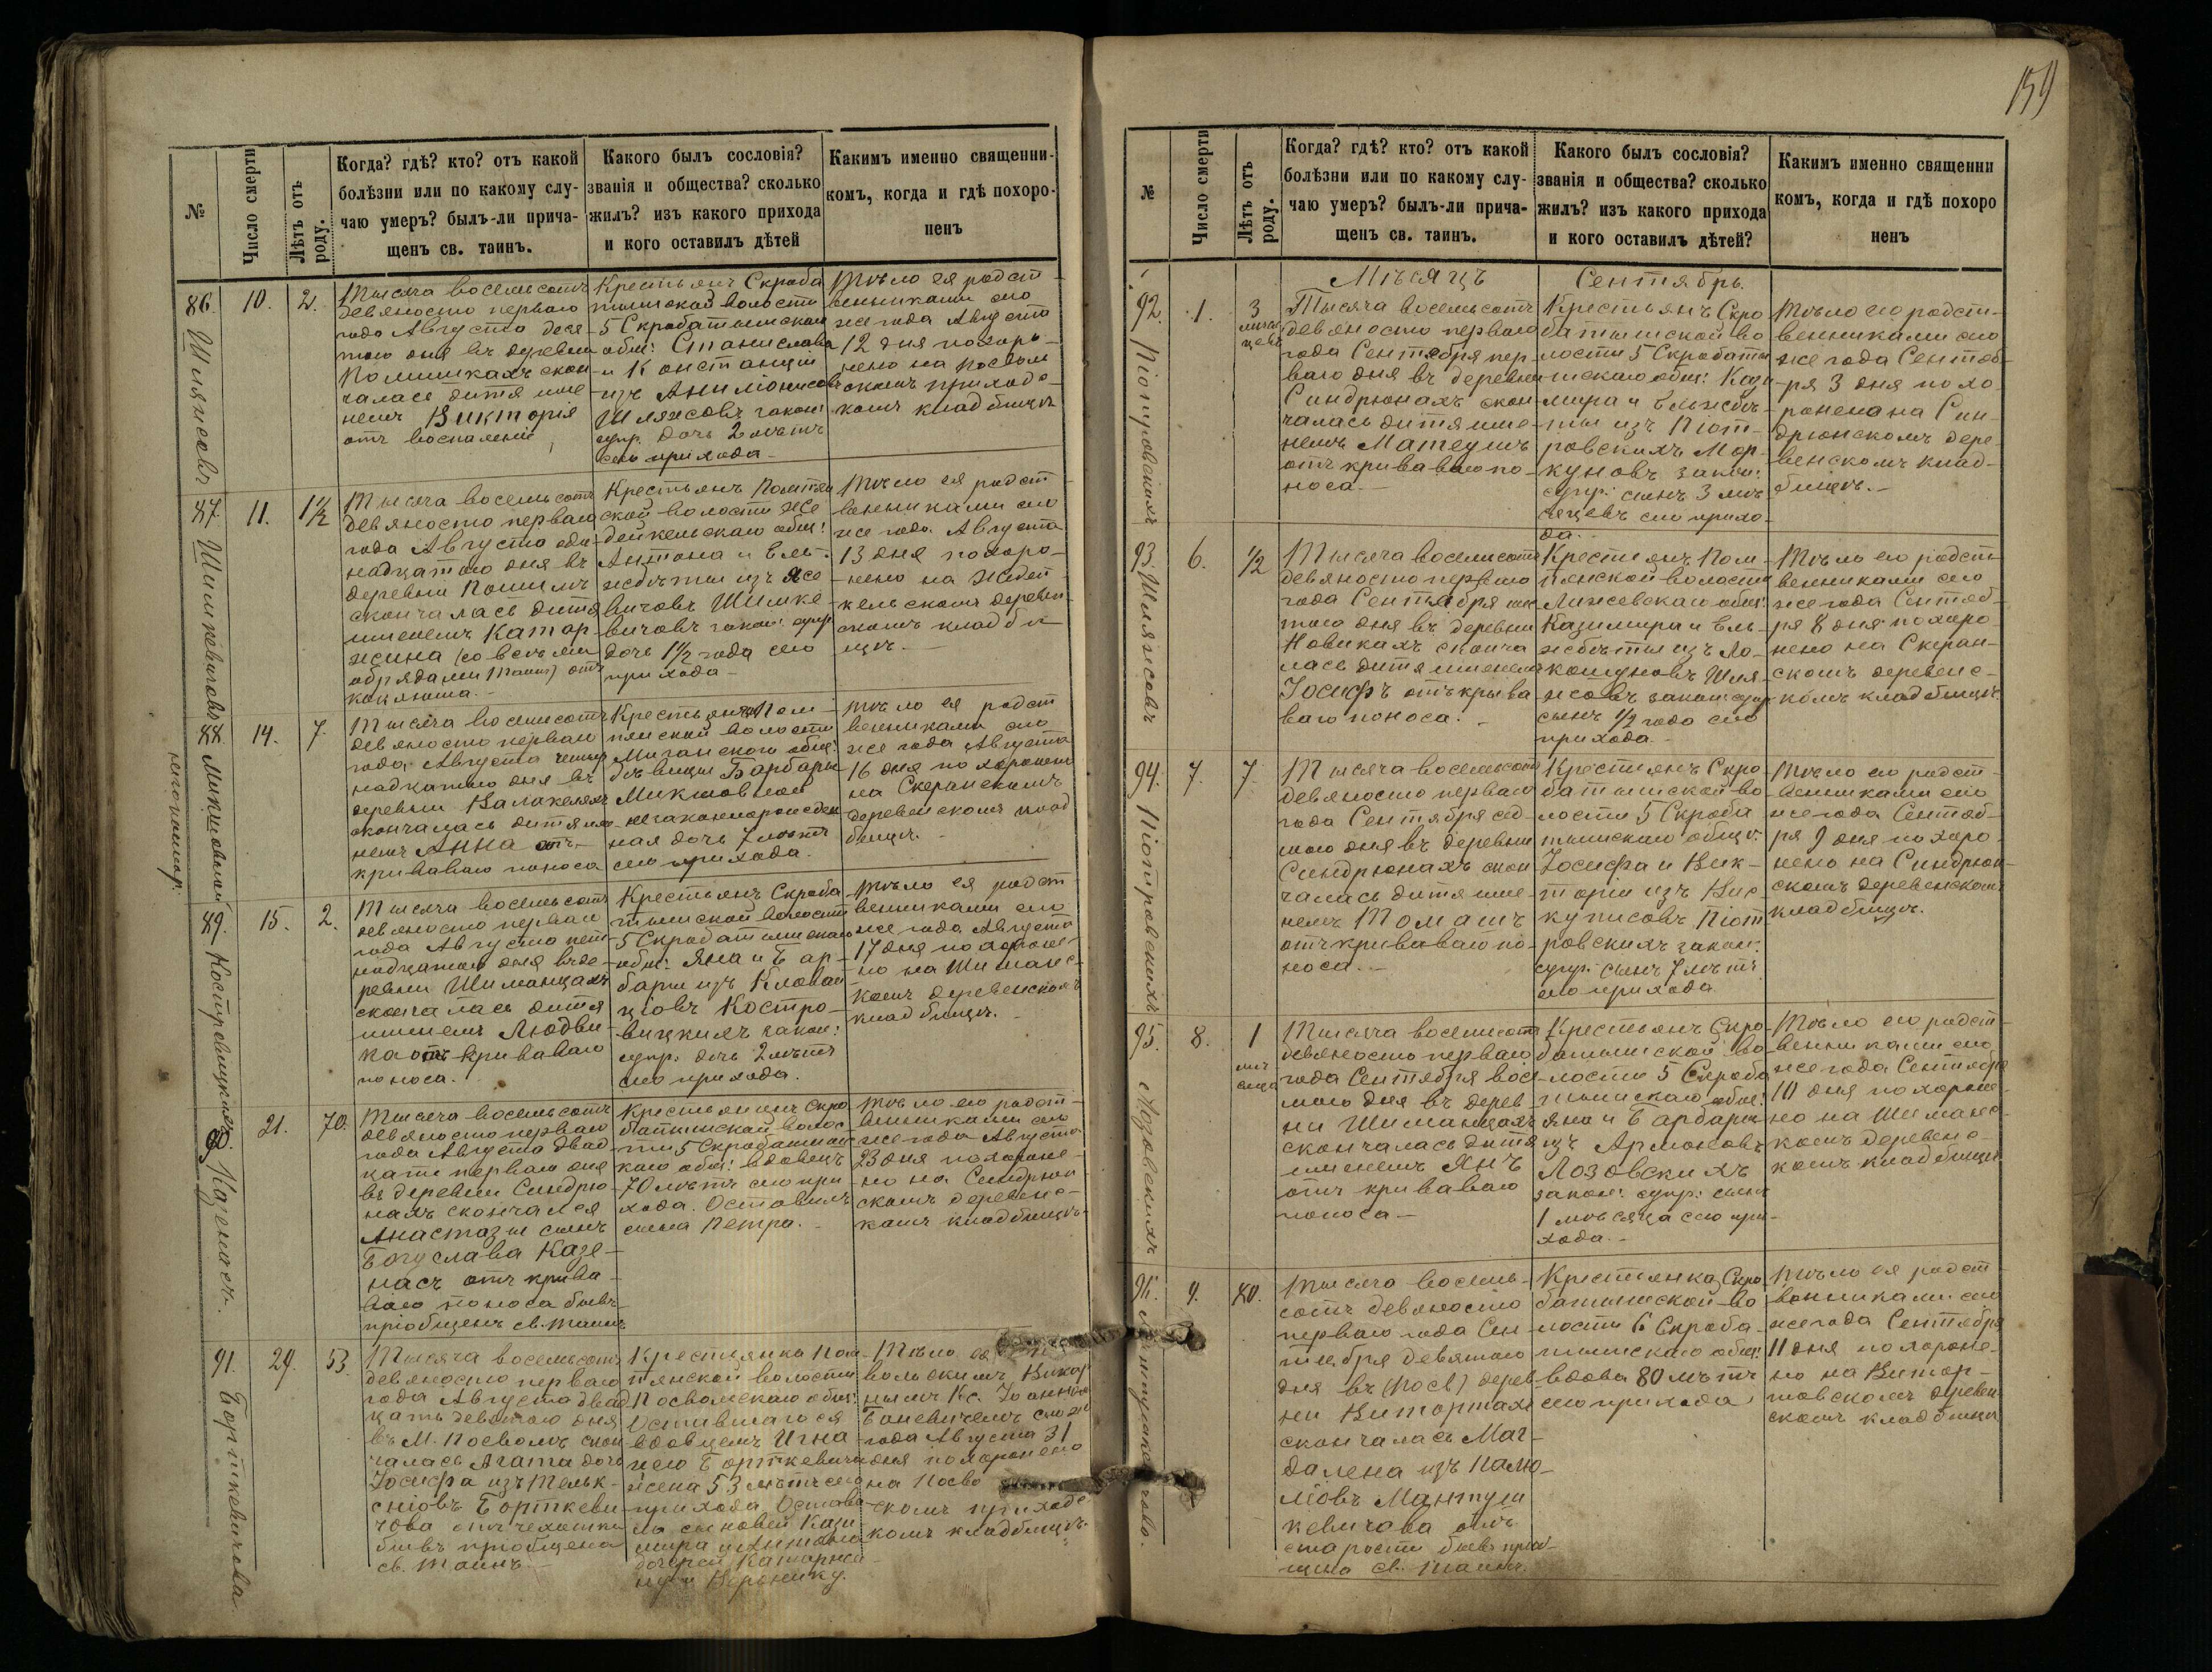 159
№
Число смерти
Лѣтъ отъ роду.
Когда? гдѣ? кто? отъ какой
болѣзни или по какому слу-
чаю умеръ? былъ-ли прича-
щенъ св. таинъ.
Какого былъ сословія?
званія и общества? сколько
жилъ? изъ какого прихода
и кого оставилъ дѣтей
Какимъ именно священни-
комъ, когда и гдѣ похоро-
ненъ
86. Шляжесовъ
10.
2.
Тысяча восемьсотъ
девяносто перваго
года Августа деся
таго дня въ деревни
скон
чалась дитя име
немъ Викторія
отъ воспаленіе
Крестьянъ Скроба
тышской волости
5 Скробатышскаго
общ: Станислава
и Констанціи
изъ
Шляжесовъ закон:
супр. дочь 2 лѣтъ
сего прихода
Тѣло ея родст
венниками сего
же года Августа
12 дня похоро-
нено на Посволь
скомъ приходс-
комъ кладбищѣ
87. Шимкевичовъ
11.
1½
Тысяча восемьсотъ
девяносто перваго
года Августа оди-
надцатаго дня въ
деревни
скончалась дитя
именемъ Катар
жина (со всѣми
обрядами таин) отъ
коклюша.
Крестьянъ
ской волости Же
дейкельскаго общ:
Антона и Ель-
жбѣты изъ Ясе
вичовъ Шимке
вичовъ закон: супр
дочь 1½ года сего
прихода
Тѣло ея родст
венниками сего
же года Августа
13 дня похоро-
нено на Жедей
кельскомъ деревен
скомъ кладби
щѣ.
88.
14.
7.
Тысяча восемьсотъ
девяносто перваго
года Августа четыр
надцатаго дня въ
деревни
скончалась дитя име
немъ Анна отъ
криваваго поноса
Крестьянъ Пом
пянской волости
общ:
дѣвицы Барбары
незаконнорожден
ная дочь 7 лѣтъ
сего прихода.
Тѣло ея родст
венниками сего
же года Августа
16 дня похоронено
на Скеранскомъ
деревенскомъ клад
бищѣ.
89. Костровицкихъ
15.
2.
Тысяча восемьсотъ
девяносто перваго
года Августа пят
надцатаго дня въ де
ревни Шиманцахъ
скончалась дитя
именемъ Людви
ка отъ криваваго
поноса.
Крестьянъ Скроба
тышской волости
5 Скробатышскаго
общ: Яна и Бар
бары изъ
Костро-
вицкихъ закон:
супр. дочь 2 лѣтъ
сего прихода.
Тѣло ея родст
венниками сего
же года Августа
17 дня похороне-
но на Шиманс-
комъ деревенскомъ
кладбищѣ.
90. Казенасъ.
21.
70.
Тысяча восемьсотъ
девяносто перваго
года Августа двад
цать перваго дня
въ деревни Синдрю
нахъ скончался
Анастазы сынъ
Богуслава Казе-
насъ отъ крива
ваго поноса бывъ
пріобщенъ св. таинъ
Крестьянинъ Скро
батышской волос
ти 5 Скробатышс
каго общ: вдовецъ
70 лѣтъ сего при
хода. Оставилъ
сына Петра.
Тѣло его родст-
венниками сего
же года Августа
23 дня похороне-
но на Синдрюн
скомъ деревенс-
комъ кладбищѣ
91. Борткевичова
29.
53.
Тысяча восемьсотъ
девяносто перваго
года Августа двад
цать девятаго дня
въ м. Посволь скон
чалась Агата дочь
Іосифа изъ
Борткеви
чова отъ чахотки
бывъ пріобщена
св. таинъ.
Крестьянка Пом
пянской волости
Посвольскаго общ:
Оставшагося
вдовцемъ Игна
цего Борткевича
жена 53 лѣтъ сего
прихода. Остави
ла сыновей Кази
мира и Антона
дочерей Катаржи
ну и Веронику.
Тѣло ея
вольскимъ Викар
нымъ Кс. Іоанномъ
сего же
года Августа 31
дня похоронено
на Посво
скомъ приходс
комъ кладбищѣ.
№
Число смерти
Лѣтъ отъ роду.
Когда? гдѣ? кто? отъ какой
болѣзни или по какому слу-
чаю умеръ? былъ-ли прича-
щенъ св. таинъ.
Какого былъ сословія?
званія и общества? сколько
жилъ? изъ какого прихода
и кого оставилъ дѣтей?
Какимъ именно священни
комъ, когда и гдѣ похоро
ненъ
Мѣсяцъ Сентябрь.
92. Піотровскихъ
1.
3 мѣся цевъ
Тысяча восемьсотъ
девяносто перваго
года Сентября пер
ваго дня въ деревни
Синдрюнахъ скон
чалась дитя име-
немъ Матеушъ
отъ криваваго по-
носа.
Крестьянъ Скро
батышской во
лости 5 Скробаты
шскаго общ: Кази
мира и Ельжбѣ
ты изъ Піот-
ровскихъ Мор-
куновъ закон:
супр: сынъ 3 мѣ
сяцевъ сего прихо-
да.
Тѣло его родст-
венниками сего
же года Сентяб-
ря 3 дня похо
ронена на Син-
дрюнскомъ дере
венскомъ клад-
бищѣ.
93. Шляжесовъ
6.
½
Тысяча восемьсотъ
девяносто перваго
года Сентября шес
таго дня въ деревни
Новикахъ сконча
лась дитя именемъ
Іосифъ отъ крыва
ваго поноса.
Крестьянъ Пом
пянской волости
общ:
Казимира и Ель-
жбѣты изъ
Шля-
жесовъ закон: супр
сынъ ½ года сего
прихода.
Тѣло его родст
венниками сего
же года Сентяб-
ря 8 дня похоро
нено на Скеран-
скомъ деревенс-
комъ кладбищѣ
94. Піотровскихъ
7.
7
Тысяча восемьсотъ
девяносто перваго
года Сентября сед-
маго дня въ деревни
Синдрюнахъ скон
чалась дитя име
немъ Томашъ
отъ криваваго по-
носа.
Крестьянъ Скро
батышской во-
лости 5 Скроба
тышскаго общ:
Іосифа и Вик-
торіи изъ
Піот
ровскихъ закон:
супр: сынъ 7 лѣтъ
сего прихода
Тѣло его родст-
венниками сего
же года Сентяб-
ря 9 дня похоро
нено на Синдрюн
скомъ деревенскомъ
кладбищѣ.
95. Лозовскихъ
8.
1 мѣ сяца
Тысяча восемьсотъ
девяносто перваго
года Сентября вос-
маго дня въ дерев-
ни Шиманцахъ
скончалась дитя
именемъ Янъ
отъ криваваго
поноса
Крестьянъ Скро-
батышской во-
лости 5 Скроба
тышскаго общ:
Яна и Барбары
изъ Армоновъ
Лозовскихъ
закон: супр: сынъ
1 мѣсяца сего при-
хода.
Тѣло его родст-
венниками сего
же года Сентября
10 дня похороне-
но на Шиманс-
комъ деревенс-
комъ кладбищѣ
96.
9.
80.
Тысяча восемь-
сотъ девяносто
перваго года Сен
тября девятаго
дня въ дерев
ни
скончалась Маг-
далена изъ
Мантуш
кевичова отъ
старости бывъ пріоб-
щена св. таинъ.
Крестьянка Скро
батышской во
лости 6 Скроба-
тышскаго общ:
вдова 80 лѣтъ
сего прихода
Тѣло ея родст-
венниками сего
же года Сентября
11 дня похороне-
но на
деревен
скомъ кладбищѣ